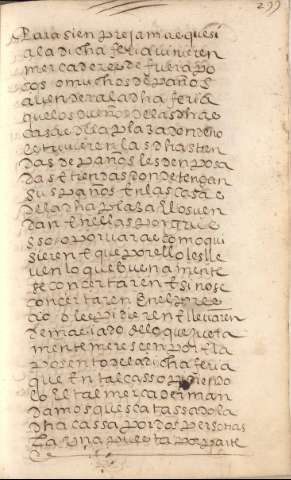 297
Para sienpre jamas que si
a la dicha feria vinieren
mercaderes de fuera po
cos o muchos de paños
a vender a la dha feria
que los dueños de las dhas
casas de la plaza donde no
estuvieren las dhas tien
das de paños les den posa
das e tiendas donde tengan
sus paños en las casas
de la dha plaza e los ven
dan en ellas por grue
sso o por varas como qui
sieren e que por ello les lle
ven lo que buenamente
se concertaren e si no se
concertaren en el pre
cio o les pidieren e llevaren
demaciado de lo que justa
mente merescen por el a
posento de la dicha feria
que en tal casso pidiendo
lo el tal mercader man
damos que sea tassado la
dha cassa por dos personas
la una puesta por parte